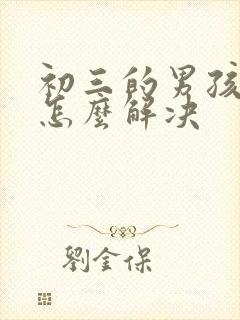 初三的男孩
怎麼解决
劉金保